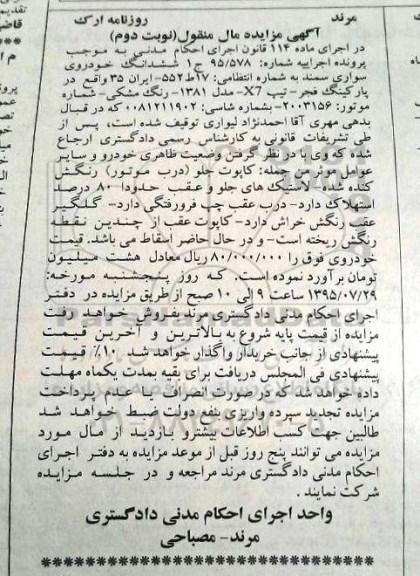 مرند
روزنامه ارک
آگهی مزایده مال منقول(نوبت دوم)
در اجرای ماده ۱۱۴ قانون اجرای احکام مدنی به موجب
پرونده اجراییه شماره: ۹۵/۵۷۸ ج۱ ششدانگ خودروی
سواری سمند به شماره انتظامی: ۱۷ط۵۵۲- ایران ۳۵ واقع در
پارکینگ فجر- تیپ X7- مدل ۱۳۸۱- رنگ مشکی- شماره
موتور: ۲۰۰۳۱۵۶- شماره شاسی: ۰۰۸۱۲۱۱۹۰۲ که در قبال
بدهی مهری آقا احمدنژاد لیواری توقیف شده است، پس از
طی تشریفات قانونی به کارشناس رسمی دادگستری ارجاع
شده که وی با در نظر گرفتن وضعیت ظاهری خودرو و سایر
عوامل موثر من جمله: کاپوت جلو (درب موتور) رنگش
کنده شده- لاستیک های جلو و عقب حدودا ۸۰ درصد
استهلاک دارد- درب عقب چپ فرورفتگی دارد- گلگیر
عقب رنگش خراش دارد- کاپوت عقب از چندین نقطه
رنگش ریخته است- و در حال حاضر اسقاط می باشد. قیمت
خودروی فوق را ۸۰/۰۰۰/۰۰۰ ریال معادل هشت میلیون
تومان برآورد نموده است. که روز پنجشنبه مورخه:
۱۳۹۵/۰۷/۲۹ ساعت ۹ الی ۱۰ صبح از طریق مزایده در دفتر
اجرای احکام مدنی دادگستری مرند بفروش خواهد رفت
مزایده از قیمت پایه شروع به بالاترین و آخرین قیمت
پیشنهادی از جانب خریدار واگذار خواهد شد ۱۰٪ قیمت
پیشنهادی فی المجلس دریافت برای بقیه بمدت یکماه مهلت
داده خواهد شد که در صورت انصراف یا عدم پرداخت
مزایده تجدید سپرده واریزی بنفع دولت ضبط خواهد شد
طالبین جهت کسب اطلاعات بیشترو بازدید از مال مورد
مزایده می توانند پنج روز قبل از موعد مزایده به دفتر اجرای
احکام مدنی دادگستری مرند مراجعه و در جلسه مزایده
شرکت نمایند .
واحد اجرای احکام مدنی دادگستری
مرند- مصباحی